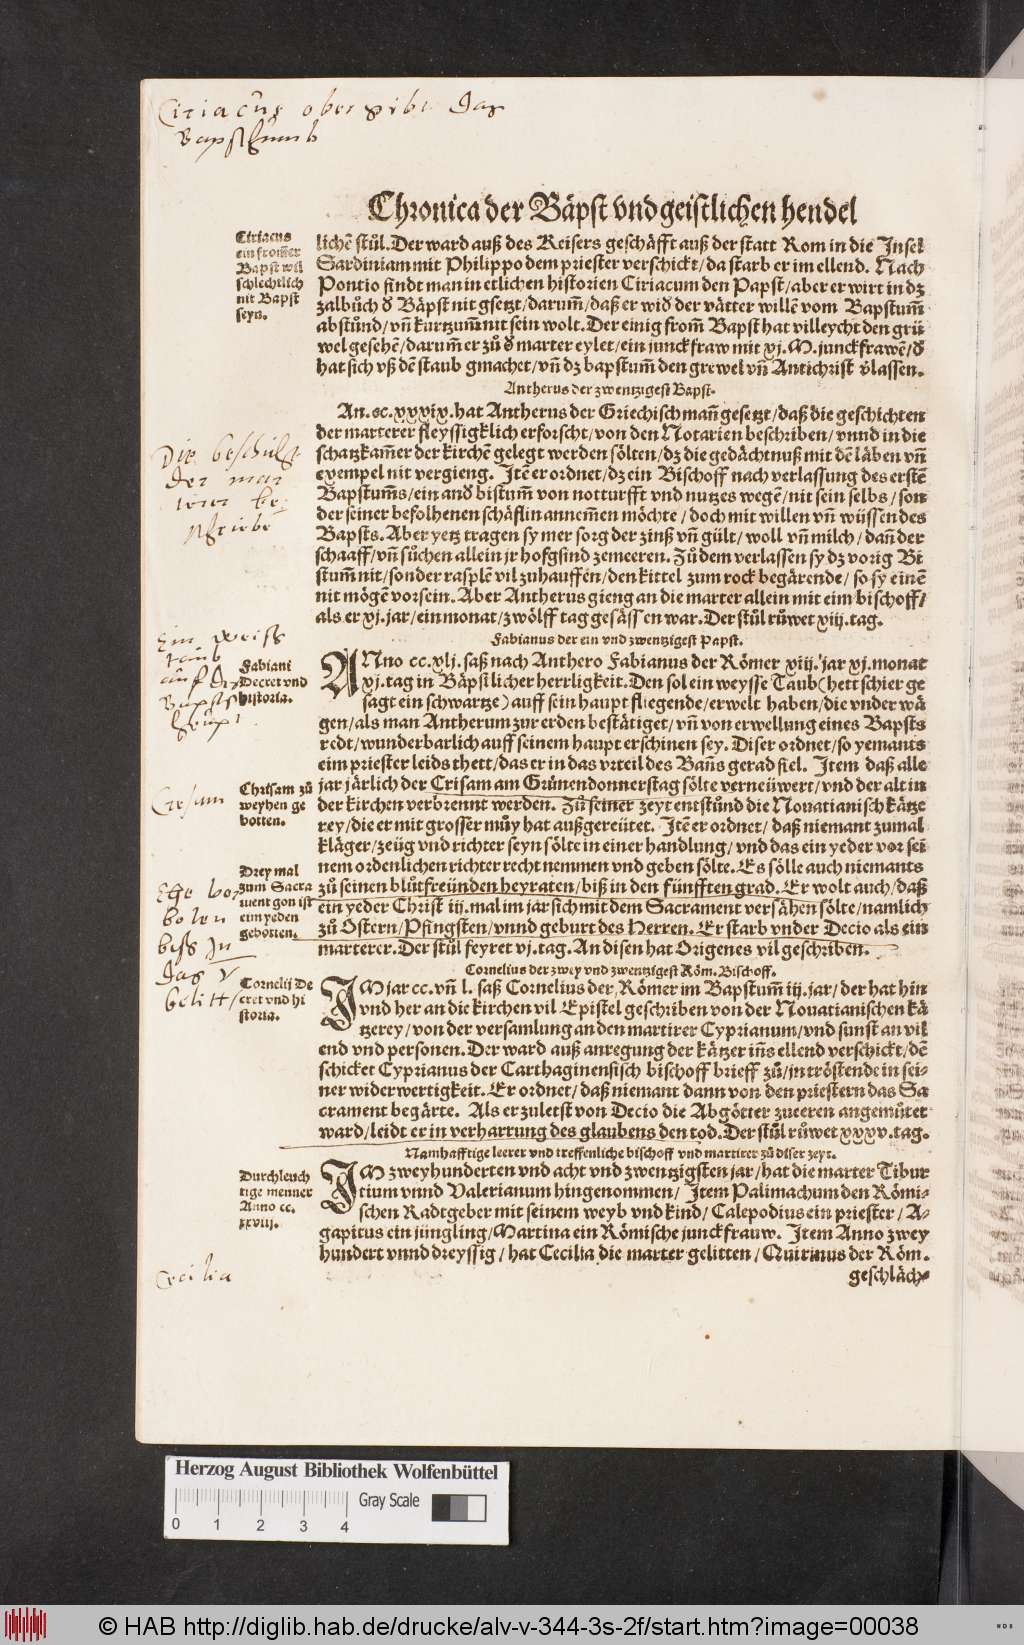 Ciriacus ober gibt das
Bapsthumb
Chronica der Bäpst vnd geistlichen hendel
Ciriacus
ein from̃er
Bapst wil
schlechtlich
nit Bapst
seyn.
lichẽ stůl. Der ward auß des Keisers geschäfft auß der statt Rom in die Insel
Sardiniam mit Philippo dem priester verschickt / da starb er im ellend. Nach
Pontio findt man in etlichen historien Ciriacum den Papst / aber er wirt in dz
zalbůch d̕ Bäpst nit gsetzt / darum̃ / daß er wid̕ der vätter willẽ vom Bapstum̃
abstůnd / vñ kurtzum̃ nit sein wolt. Der einig from̃ Bapst hat villeycht den grü
wel gesehẽ / darum̃ er zů d̕ marter eylet / ein junckfraw mit xj. M. junckfrawẽ / d̕
hat sich vß dẽ staub gmachet / vñ dz bapstum̃ den grewel vñ Antichrist v̕lassen.
Antherus der zwentzigest Bapst.
An. cc. xxxix. hat Antherus der Griechisch man̄ gesetzt / daß die geschichten
der marterer fleyssigklich erforscht / von den Notarien beschriben / vnnd in die
schatzkam̃er der kirchẽ gelegt werden sölten / dz die gedächtnuß mit dẽ läben vñ
exempel nit vergieng. Itẽ er ordnet / dz ein Bischoff nach verlassung des erstẽ
Bapstum̃s / ein and̕ bistum̃ von notturfft vnd nutzes wegẽ / nit sein selbs / son
der seiner befolhenen schäflin annem̃en möchte / doch mit willen vñ wüssen des
Bapsts. Aber yetz tragen sy mer sorg der zinß vñ gült / woll vñ milch / dañ der
schaaff / vñ sůchen allein jr hofgsind zemeeren. Zů dem verlassen sy dz vorig Bi
stum̃ nit / sonder rasplẽ vil zuhauffen / den kittel zum rock begärende / so sy einẽ
nit mögẽ vor sein. Aber Antherus gieng an die marter allein mit eim bischoff /
als er xj. jar / ein monat / zwölff tag gesässen war. Der stůl růwet xiij. tag.
Die beschüss
der mar
terer be
schriebe
Fabianus der ein vnd zwentzigest Papst.
Ein weiss
taub
auf des
Bapsts
haupt
Fabiani
Decret vnd
historia.
ANno cc. xlj. saß nach Anthero Fabianus der Römer xiij. jar xj. monat
xj. tag in Bäpstlicher herrligkeit. Den sol ein weysse Taub (hett schier ge
sagt ein schwartze) auff sein haupt fliegende / erwelt haben / die vnder wä
gen / als man Antherum zur erden bestätiget / vñ von erwellung eines Bapsts
redt / wunderbarlich auff seinem haupt erschinen sey. Diser ordnet / so yemants
eim priester leids thett / das er in das vrteil des Bañs gerad fiel. Item daß alle
jar järlich der Crisam am Grůnendonnerstag sölte verneüwert / vnd der alt in
der kirchen verbrennt werden. Zů seiner zeyt entstůnd die Nouatianisch kätze
rey / die er mit grosser můy hat außgereütet. Itẽ er ordnet / daß niemant zumal
kläger / zeüg vnd richter seyn sölte in einer handlung / vnd das ein yeder vor sei
nem ordenlichen richter recht nemmen vnd geben sölte. Es sölle auch niemants
zů seinen blůtfreünden heyraten / biß in den fünfften grad. Er wolt auch / daß
ein yeder Christ iij. mal im jar sich mit dem Sacrament versähen sölte / namlich
zů Ostern / Pfingsten / vnnd geburt des Herren. Er starb vnder Decio als ein
marterer. Der stůl feyret vj. tag. An disen hat Origenes vil geschriben.
Cresam
Chrisam zů
weyhen ge
botten.
Drey mal
zum Sacra
ment gon ist
eim yeden
gebotten.
Ehe
boten
biss in
das V
Cornelius der zwey vnd zwentzigest Röm. Bischoff.
Cornelij De
cret vnd hi
storia.
IM jar cc. vñ l. saß Cornelius der Römer im Bapstum̃ iij. jar / der hat hin
vnd her an die kirchen vil Epistel geschriben von der Nouatianischen kä
tzerey / von der versamlung an den martirer Cyprianum / vnd sunst an vil
end vnd personen. Der ward auß anregung der kätzer iñs ellend verschickt / dẽ
schicket Cyprianus der Carthaginensisch bischoff brieff zů / jn tröstende in sei-
ner widerwertigkeit. Er ordnet / daß niemant dann von den priestern das Sa
crament begärte. Als er zuletst von Decio die Abgötter zueeren angemůtet
ward / leidt er in verharrung des glaubens den tod. Der stůl růwet xxxv. tag.
Namhafftige leerer vnd treffenliche bischoff vnd martirer zů diser zeyt.
Durchleuch
tige menner
Anno cc.
xxviij.
IM zweyhunderten vnd acht vnd zwentzigsten jar / hat die marter Tibur
tium vnnd Valerianum hingenommen / Item Palimachum den Römi-
schen Radtgeber mit seinem weyb vnd kind / Calepodius ein priester / A-
gapitus ein jüngling / Martina ein Römische junckfrauw. Item Anno zwey
hundert vnnd dreyssig / hat Cecilia die marter gelitten / Quirinus der Röm.
Cecilia
geschläch-
Herzog August Bibliothek Wolfenbüttel
Gray Scale
0 1 2 3 4
© HAB http://diglib.hab.de/drucke/alv-v-344-3s-2f/start.htm?image=00038